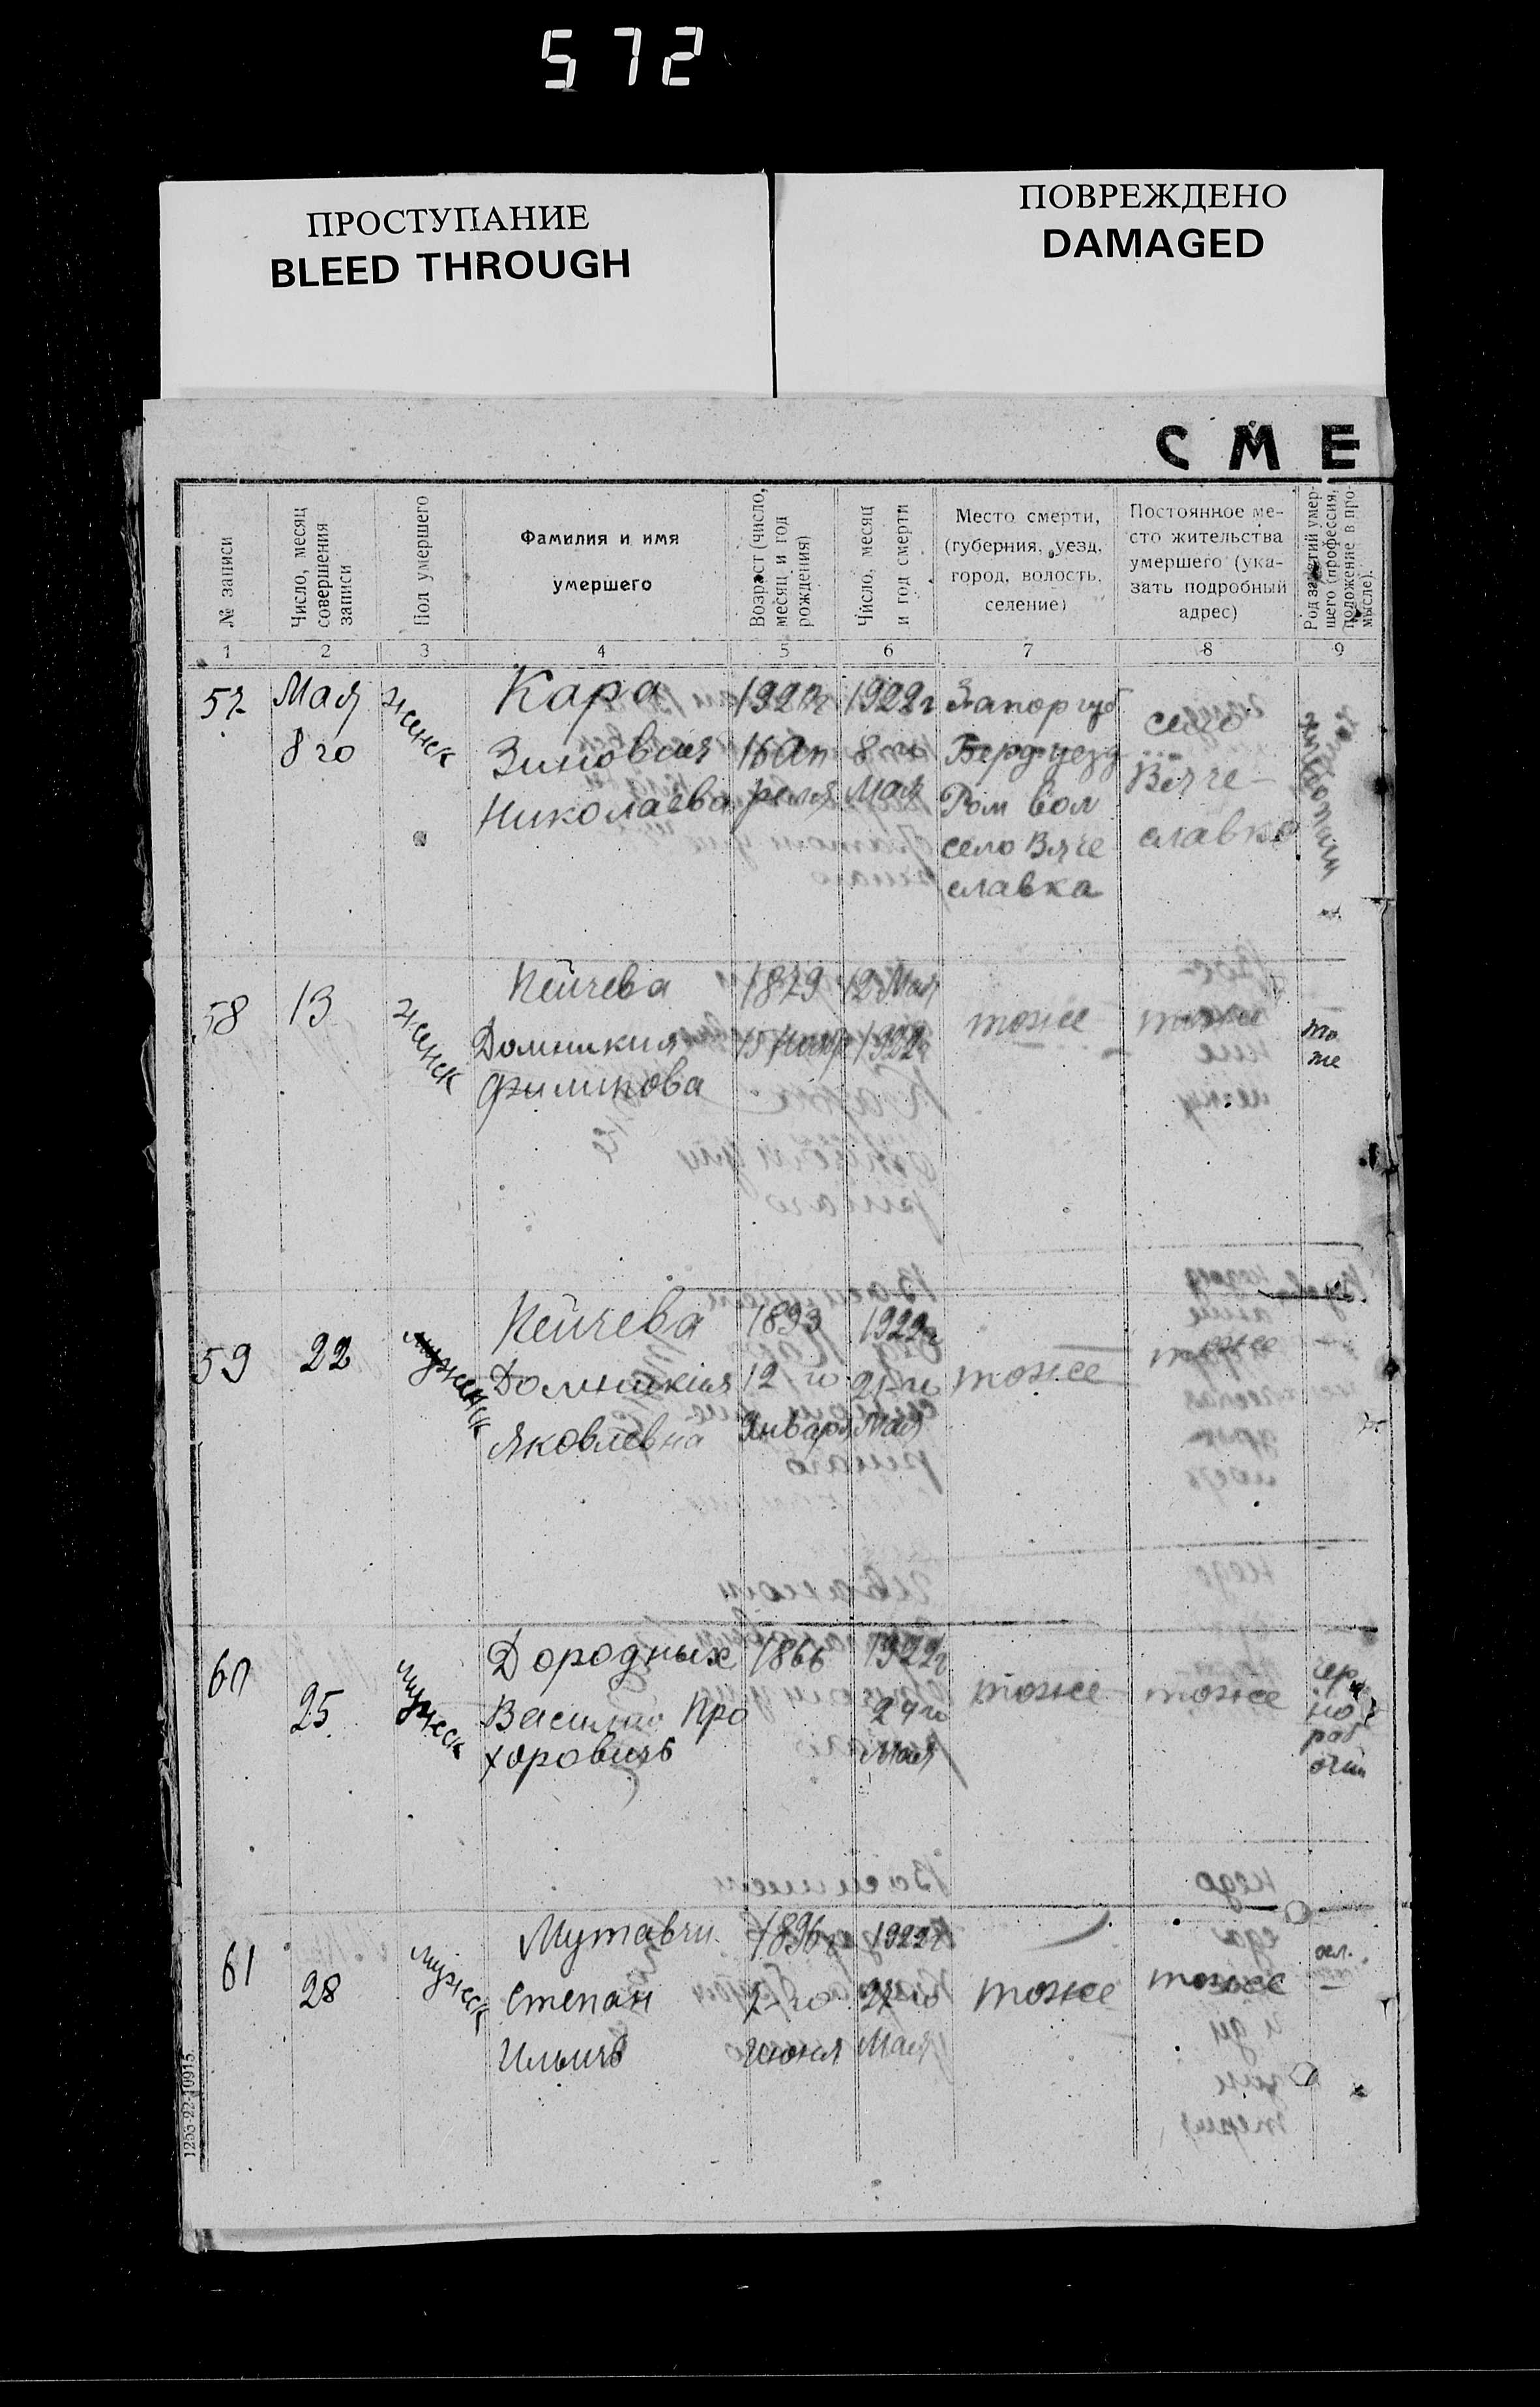 572
ПРОСТУПАНИЕ
BLEED THROUGH
ПОВРЕЖДЕНО
DAMAGED
СМЕ
№ записи
Число, месяц
совершения
записи
Пол умершего
Фамилия и имя
умершего
Возраст (число,
месяц и год
рождения)
Число, месяц
и год смерти
Место смерти,
(губерния, уезд,
город, волость,
селение)
Постоянное ме-
сто жительства
умершего (ука-
зать подробный
адрес)
Род занятий умер-
шего (профессия,
положение в про-
мысле).
1 2 3 4 5 6 7 8 9
57
Мая
8 го
женск
Кара
Зиновия
Николаева
1922г
16 Ап
реля
1922г
8 го
Мая
Запор губ
Берд уезд
Ром вол
село Вяче
славка
село
Вяче-
славка
58
13
женск
Пейчева
Домникия
Филипова
1879
15
12 Мая
1922г
тоже
тоже
то
же
59
22
женск
Пейчева
Домникия
Яковлевна
1893
12 го
Января
1922г
21-го
Мая
тоже
тоже
60
25
мужеск
Дородных
Василий Про
хоровичъ
1866
1922г
24 го
Мая
тоже
тоже
чер
но
раб
очий
61
28
мужеск
Мутавчи
Степан
Ильичъ
1896г
2-го
июня
1922г
27 го
Мая
тоже
тоже
1253-22-10915